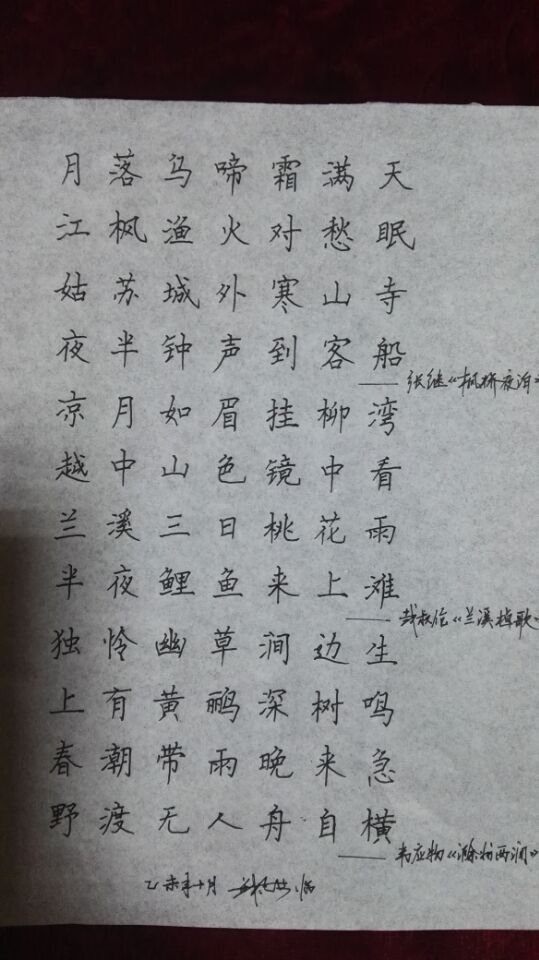 月落乌啼霜满天
江枫渔火对愁眠
姑苏城外寒山寺
夜半钟声到客船
——张继《枫桥夜泊》
凉月如眉挂柳湾
越中山色镜中看
兰溪三日桃花雨
半夜鲤鱼来上滩
——戴叔伦《兰溪棹歌
独怜幽草涧边生
上有黄鹂深树鸣
春潮带雨晚来急
野渡无人舟自横
——韦应物《滁州西涧》
乙未年十月 临